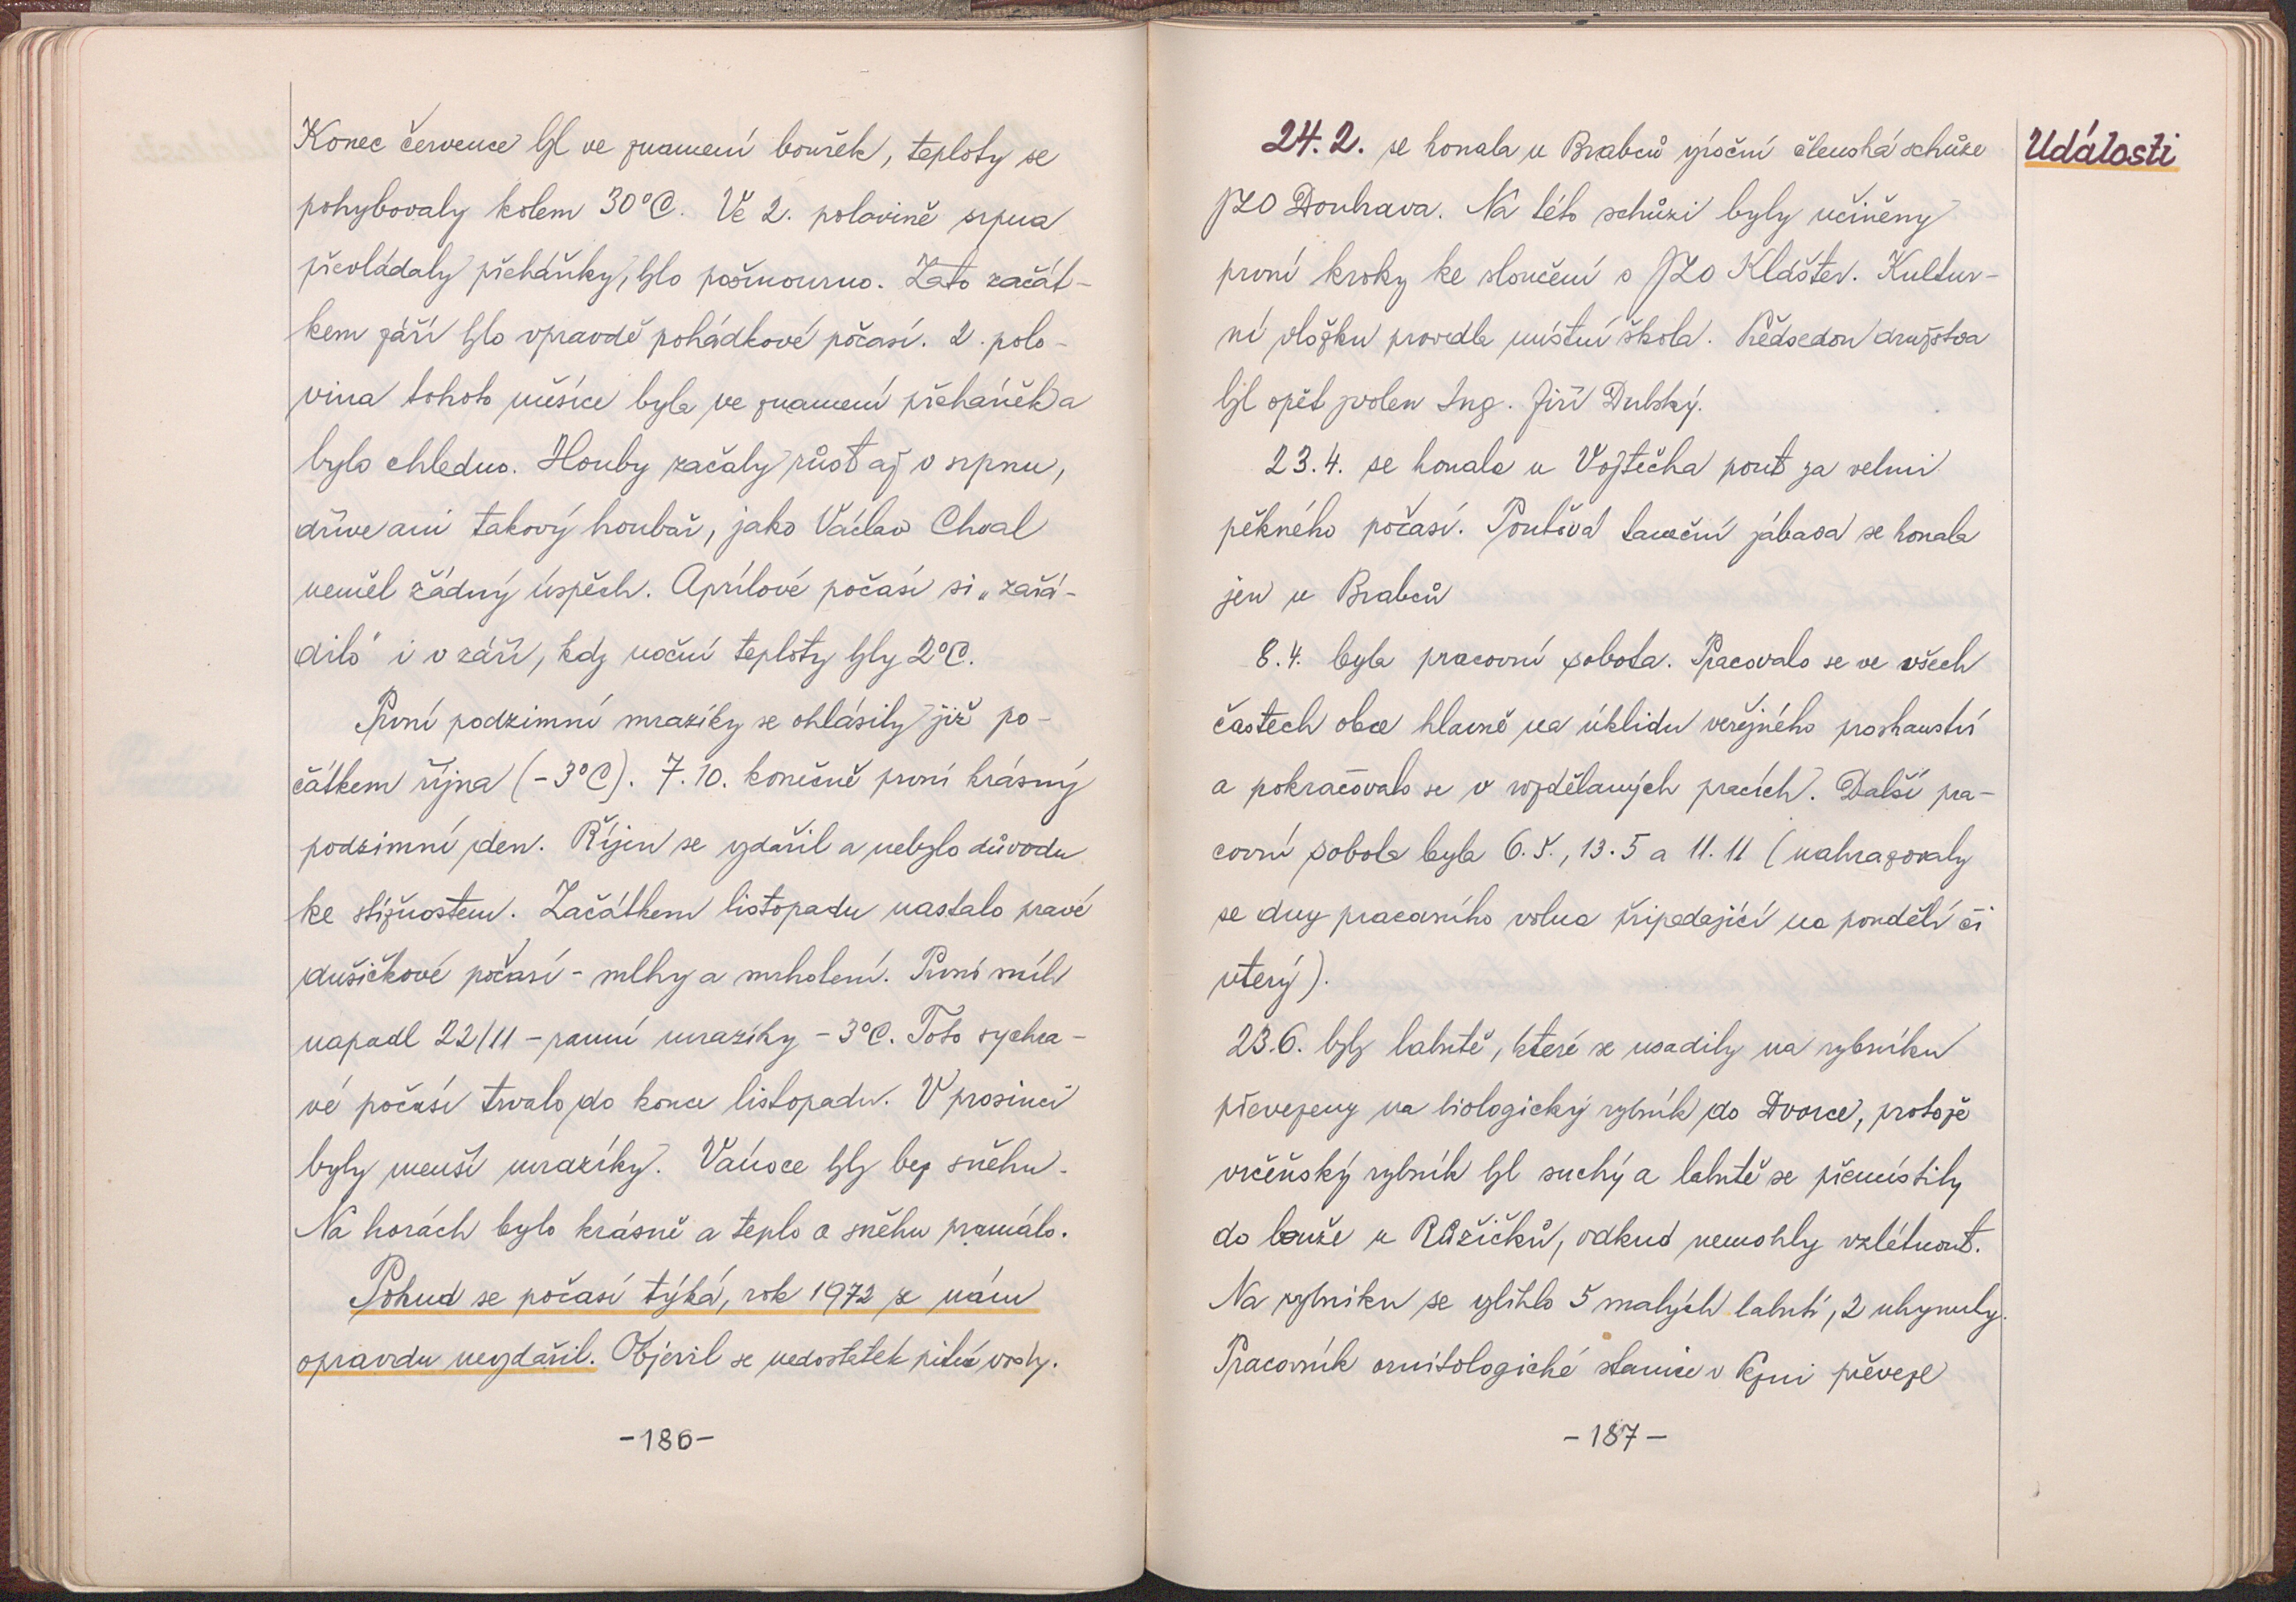 Konec července byl ve znamení bouřek, teploty se
pohybovaly kolem 30°C. Ve 2. polovině srpna
převládaly přeháňky, bylo pošmourno. Zato začát-
kem září bylo vpravdě pohádkové počasí. 2. polo-
vina tohoto měsíce byla ve znamení přeháněk a
bylo chladno. Houby začaly růst až v srpnu,
dříve ani takový houbař, jako Václav Chval
neměl žádný úspěch. Aprílové počasí si „zařá-
dilo" i v září, kdy noční teploty byly 2°C.
První podzimní mrazíky se ohlásily již po-
čátkem října (-3°C). 7.10. konečně první krásný
podzimní den. Říjen se vydařil a nebylo důvodu
ke stížnostem. Začátkem listopadu nastalo pravé
dušičkové počasí - mlhy a mrholení. První sníh
napadl 22/11 - ranní mrazíky - 3°C. Toto sychra-
vé počasí trvalo do konce listopadu. V prosinci
byly menší mrazíky. Vánoce byly bez sněhu.
Na horách bylo krásně a teplo a sněhu pramálo.
Pokud se počasí týká, rok 1972 se nám
opravdu nevydařil. Objevil se nedostatek pitné vody.
-186-
Události
24.2. se konala u Brabců výroční členská schůze
JZD Douhrava. Na této schůzi byly učiněny
první kroky ke sloučení s JZD Klášter. Kultur-
ní vložku provedla místní škola. Předsedou družstva
byl opět zvolen Ing. Jiří Dubský.
23.4. se konala u Vojtěcha pouť za velmi
pěkného počasí. Pouťová taneční zábava se konala
jen u Brabců
8.4. byla pracovní sobota. Pracovalo se ve všech
částech obce hlavně na úklidu veřejného prostranství
a pokračovalo se v rozdělaných pracích. Další pra-
covní sobota byla 6.5., 13.5 a 11.11 (nahrazovaly
se dny pracovního volna připadající na pondělí či
úterý).
23.6. byly labutě, které se usadily na rybníku
převezeny na biologický rybník do Dvorce, protože
vrčeňský rybník byl suchý a labutě se přemístily
do louže u Růžičků, odkud nemohly vzlétnout.
Na rybníku se vylíhlo 5 malých labutí, 2 uhynuly.
Pracovník ornitologické stanice v převezl
-187-